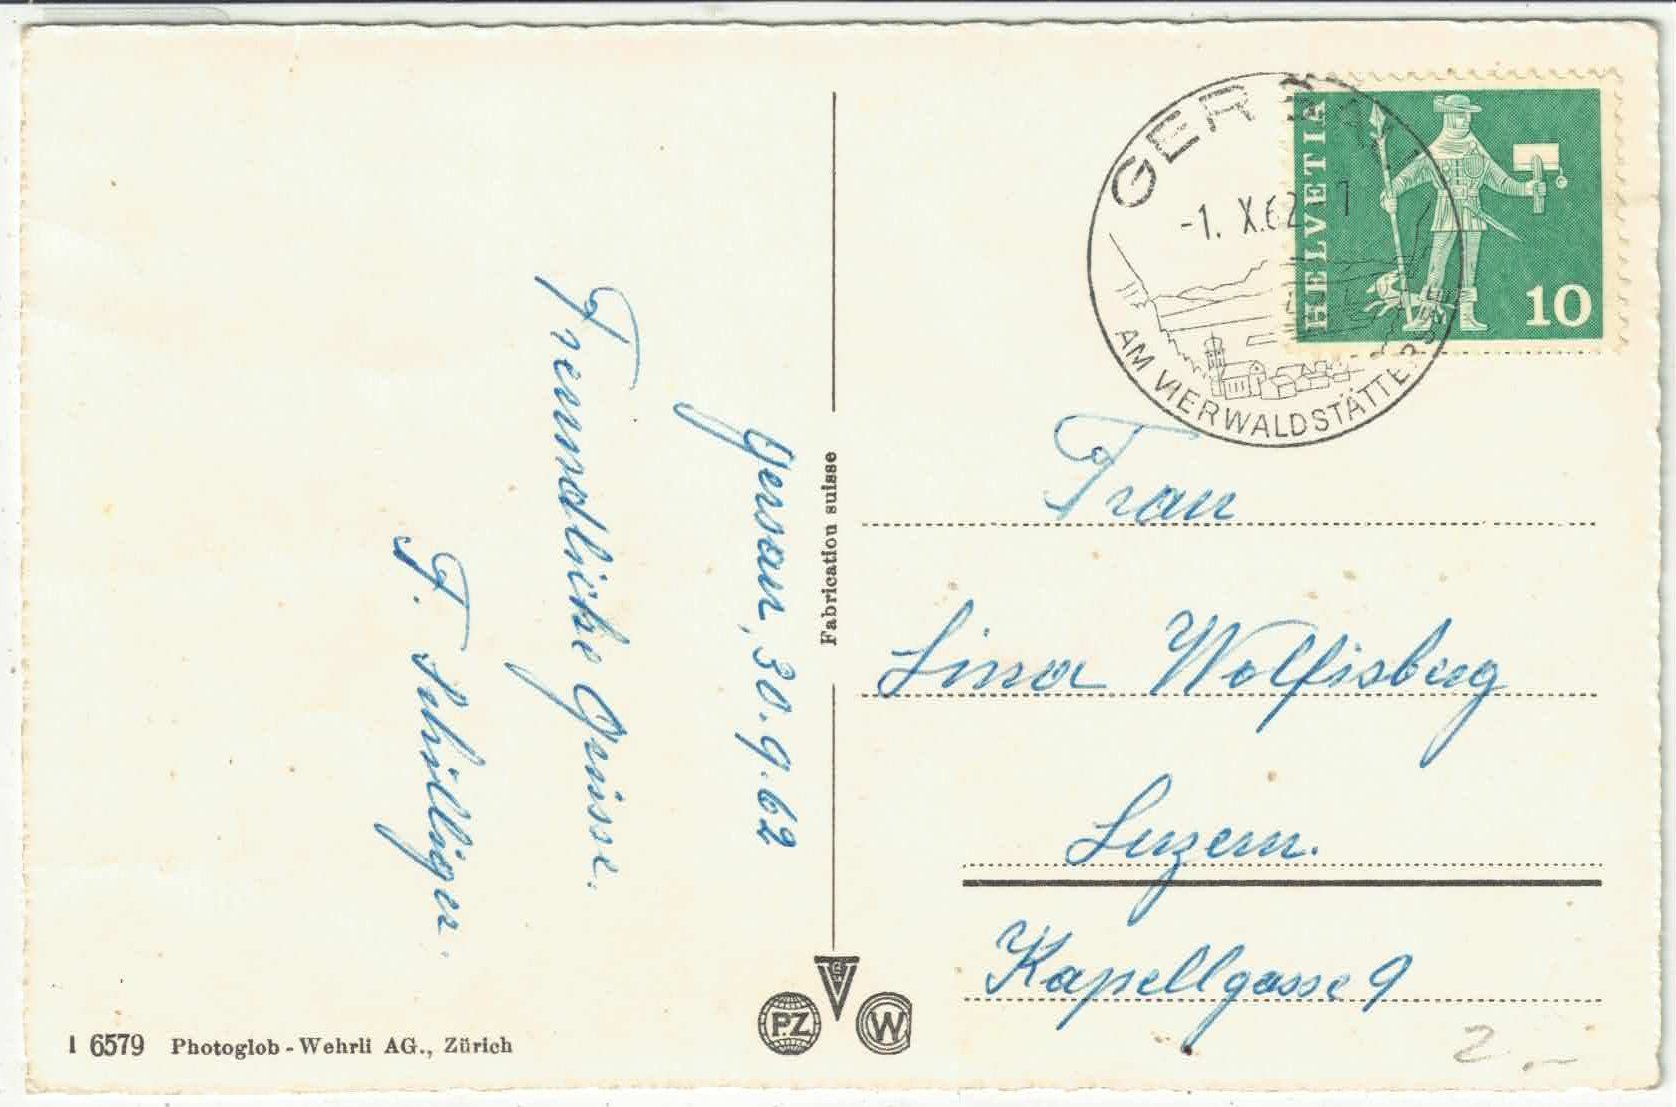 Gersau, 30.9.62
Freundliche Grüsse.
F. Schilliger.
Fabrication suisse
GERSAU
-1. X.62-7
AM VIERWALDSTÄTTERSEE
HELVETIA
10
Frau
Lina Wolfisberg
Luzern.
Kapellgasse 9
2.-
I 6579 Photoglob-Wehrli AG., Zürich
PZ
V
CW